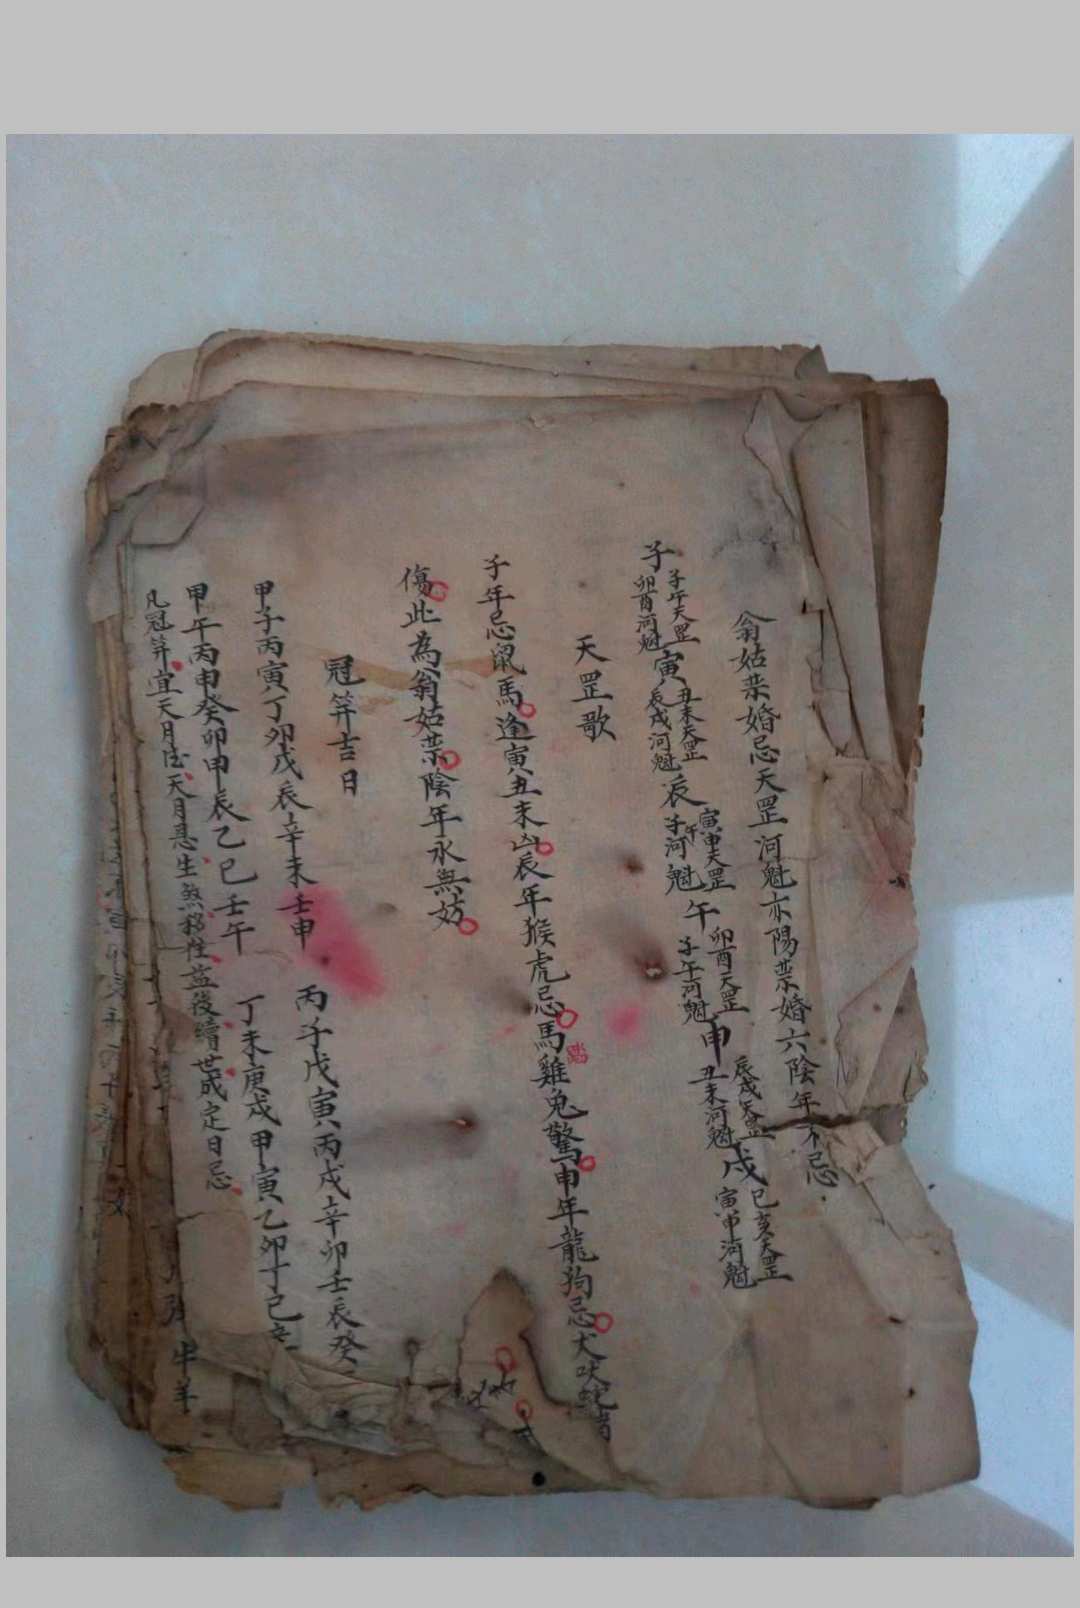 翁姑禁婚忌天罡河魁亦陽禁婚六陰年不忌
子 子午天罡 卯酉河魁 寅 丑未天罡 辰戌河魁 辰 寅申天罡 子午河魁 午 卯酉天罡 子午河魁 申 辰戌天罡 丑未河魁 戌 巳亥天罡 寅申河魁
天罡歌
子年忌鼠馬逢寅丑未凶辰年猴虎忌馬雞兔驚申年龍狗忌犬吠蛇
傷此為翁姑禁陰年永無妨
冠笄吉日
甲子丙寅丁卯戊辰辛未壬申 丙子戊寅丙戌辛卯壬辰癸
甲午丙申癸卯甲辰乙巳壬午 丁未庚戌甲寅乙卯丁巳辛
凡冠笄宜天月德天月恩生煞移性益後續世成定日忌